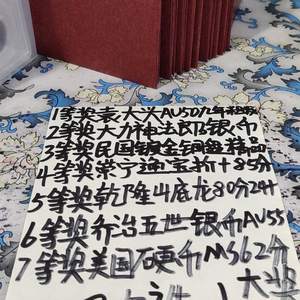 1等奖袁大头AU50九年精发
2等奖大力神法郎银币
3等奖民国镀金铜盘精品
4等奖崇宁通宝折十85分
5等奖乾隆山底龙80分24
6等奖乔治五世银币AU55
7等奖美国硬币MS62分
大奖